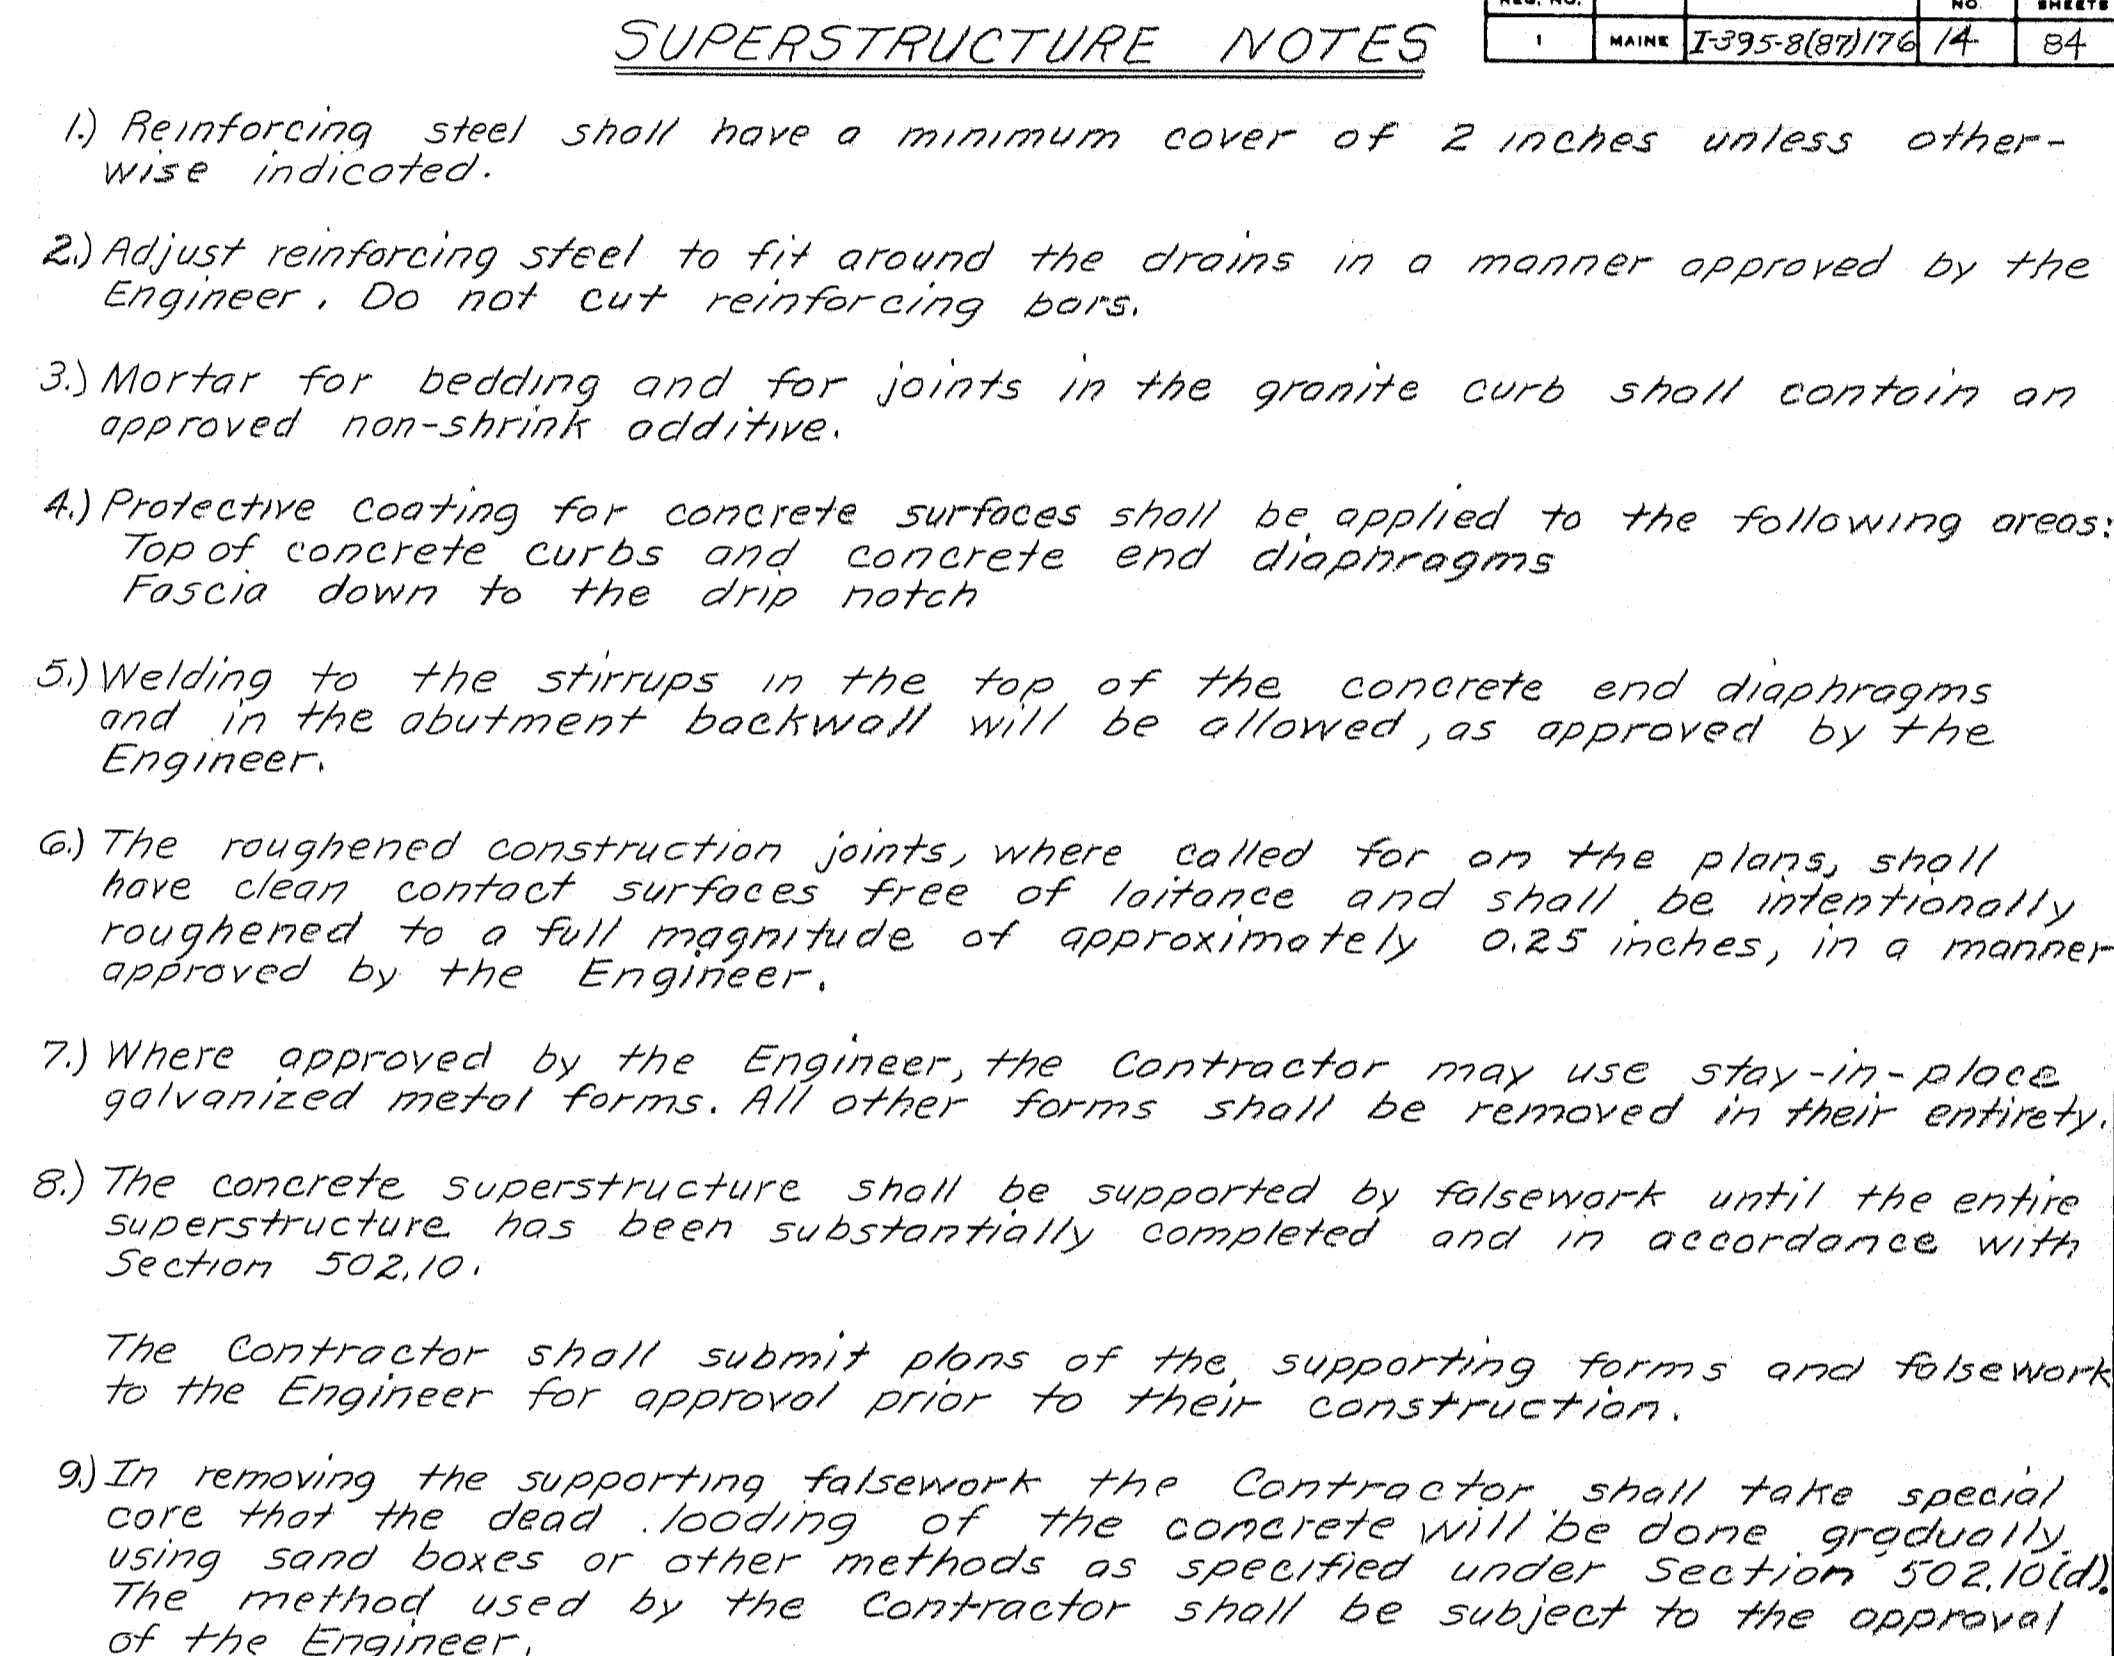 SUPERSTRUCTURE NOTES
NO. SHEETS
1 MAINE I-395-8(87)176 14 84
1.) Reinforcing steel shall have a minimum cover of 2 inches unless other-
wise indicated.
2.) Adjust reinforcing steel to fit around the drains in a manner approved by the
Engineer. Do not cut reinforcing bars.
3.) Mortar for bedding and for joints in the granite curb shall contain an
approved non-shrink additive.
4.) Protective coating for concrete surfaces shall be applied to the following areas:
Top of concrete curbs and concrete end diaphragms
Fascia down to the drip notch
5.) Welding to the stirrups in the top of the concrete end diaphragms
and in the abutment backwall will be allowed, as approved by the
Engineer.
6.) The roughened construction joints, where called for on the plans, shall
have clean contact surfaces free of laitance and shall be intentionally
roughened to a full magnitude of approximately 0.25 inches, in a manner
approved by the Engineer.
7.) Where approved by the Engineer, the Contractor may use stay-in-place
galvanized metal forms. All other forms shall be removed in their entirety.
8.) The concrete superstructure shall be supported by falsework until the entire
superstructure has been substantially completed and in accordance with
Section 502.10.
The Contractor shall submit plans of the supporting forms and falsework
to the Engineer for approval prior to their construction.
9.) In removing the supporting falsework the Contractor shall take special
care that the dead loading of the concrete will be done gradually
using sand boxes or other methods as specified under Section 502.10(d).
The method used by the Contractor shall be subject to the approval
of the Engineer.